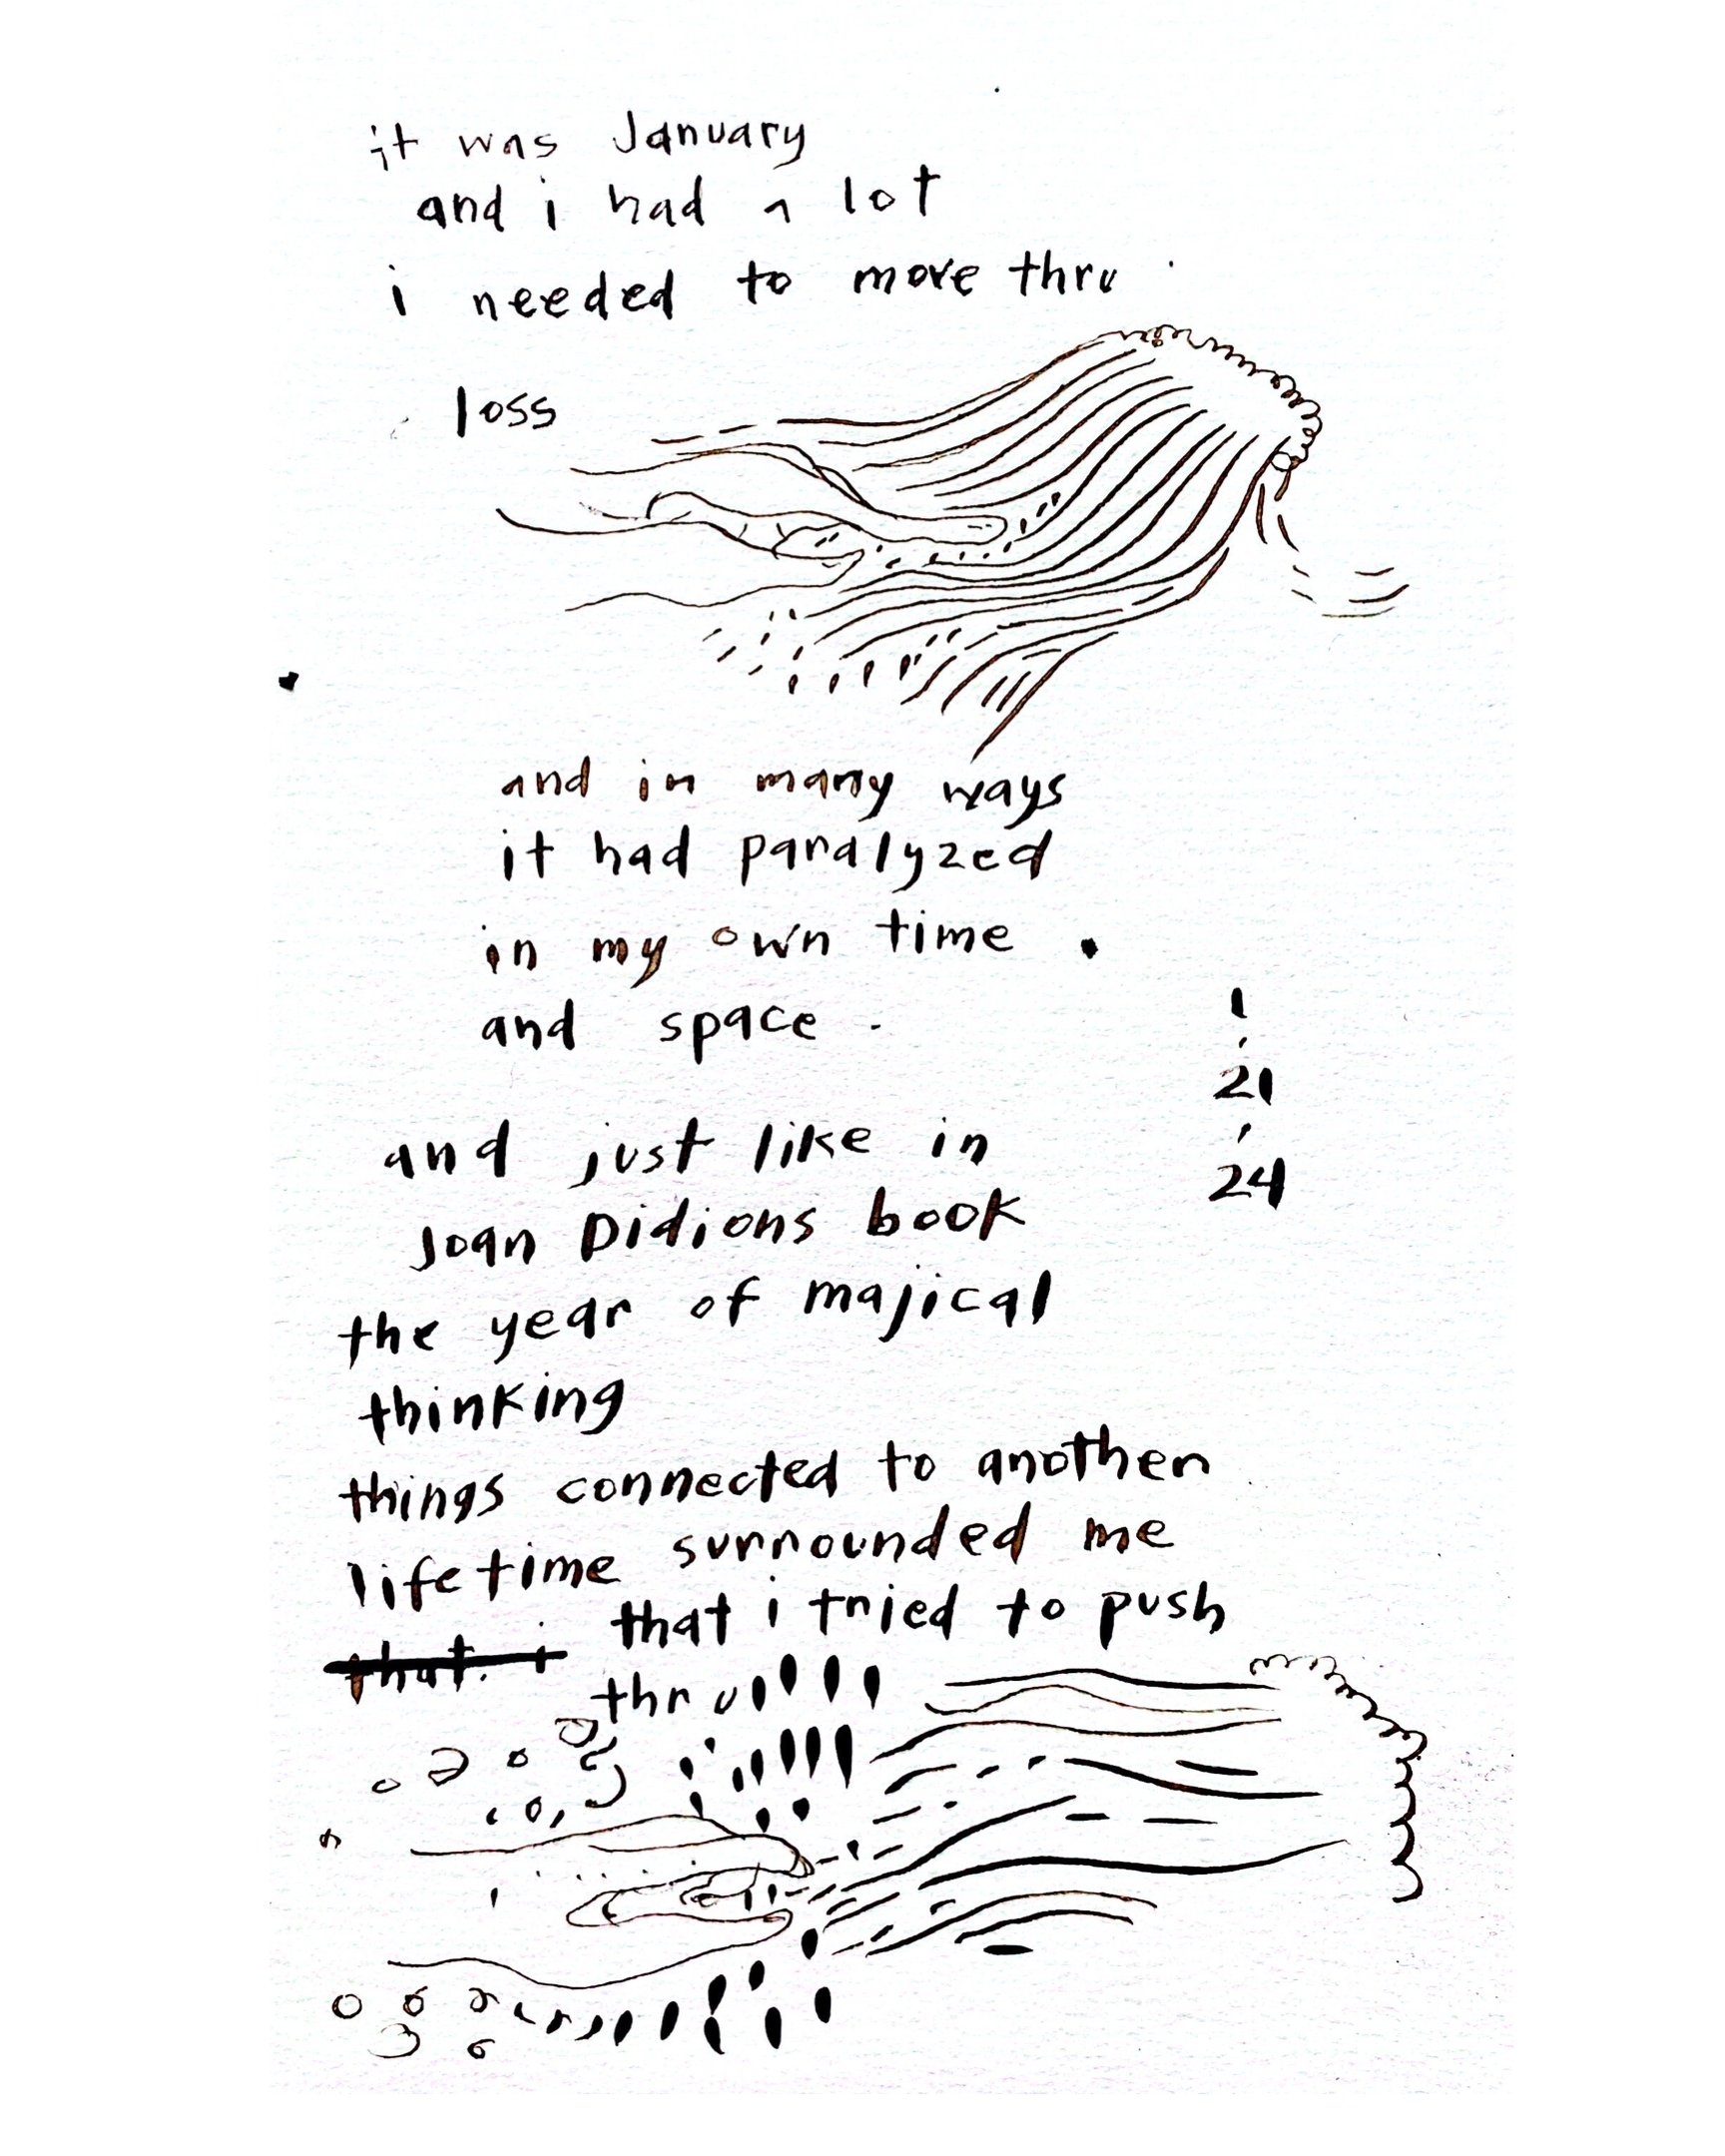 it was January
and i had a lot
i needed to move thru
loss
and in many ways
it had paralyzed
in my own time
and space
1
21
24
and just like in
Joan Didions book
the year of majical
thinking
things connected to another
lifetime surrounded me
that i
that i tried to push
thru